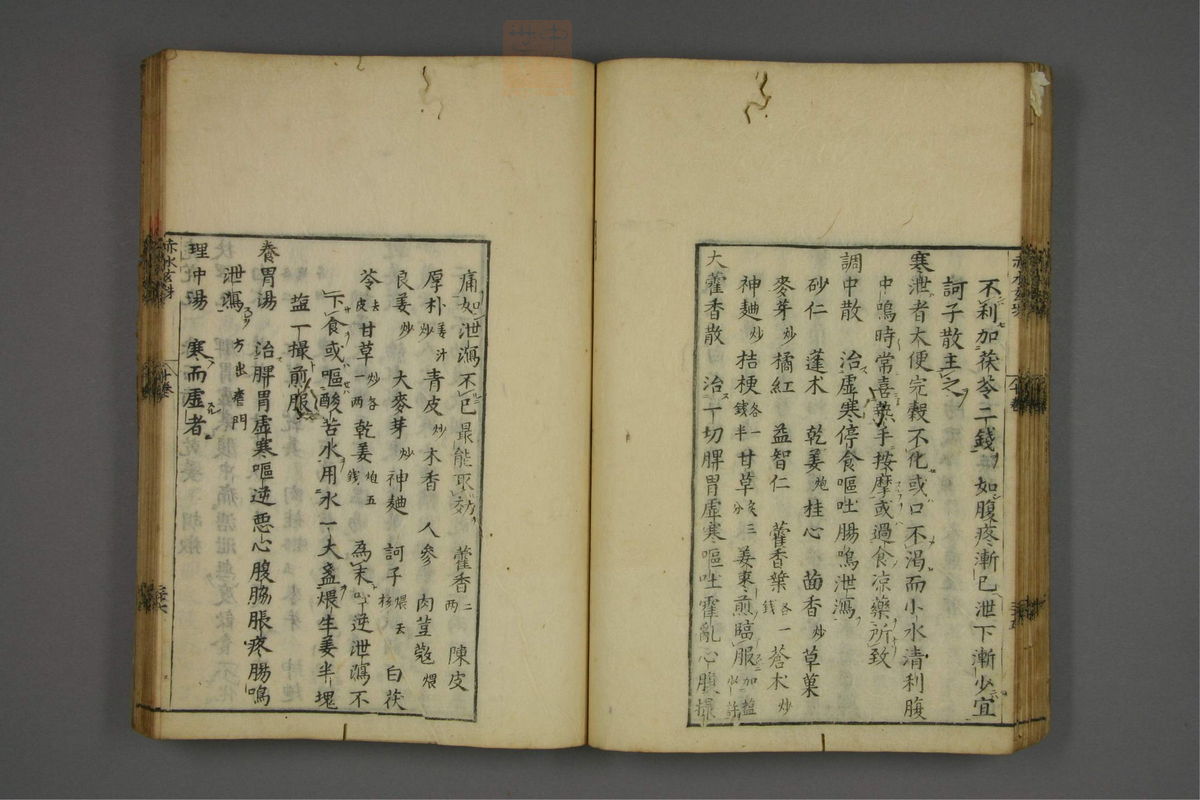 不利加茯苓二錢如腹疼漸已泄下漸少宜
訶子散主之
寒泄者大便完穀不化或口不渴而小水清利腹
中鳴時常喜熱手按摩或過食凉藥所致
調中散 治虛寒停食嘔吐腸鳴泄瀉
砂仁 蓬朮 乾姜炮 桂心 茴香炒 草菓
麥芽炒 橘紅 益智仁 藿香葉各一錢 蒼朮炒
神麯炒 桔梗各一錢半 甘草炙三分 姜棗煎臨服加塩
大藿香散 治一切脾胃虛寒嘔吐霍亂心腹撮
痛如泄瀉不已最能取効 藿香二兩 陳皮
厚朴姜汁炒 青皮炒 木香 人參 肉荳蔲煨
良姜炒 大麥芽炒 神麯炒 訶子煨去核 白茯
苓去皮 甘草炒各一兩 乾姜炮五錢 為末吐逆泄瀉不
下食或嘔酸苦水用水一大盞煨生姜半塊
塩一撮煎服
養胃湯 治脾胃虛寒嘔逆悪心腹脇脹疼腸鳴
泄瀉 方出瘧門
理中湯 寒而虛者
赤水玄珠